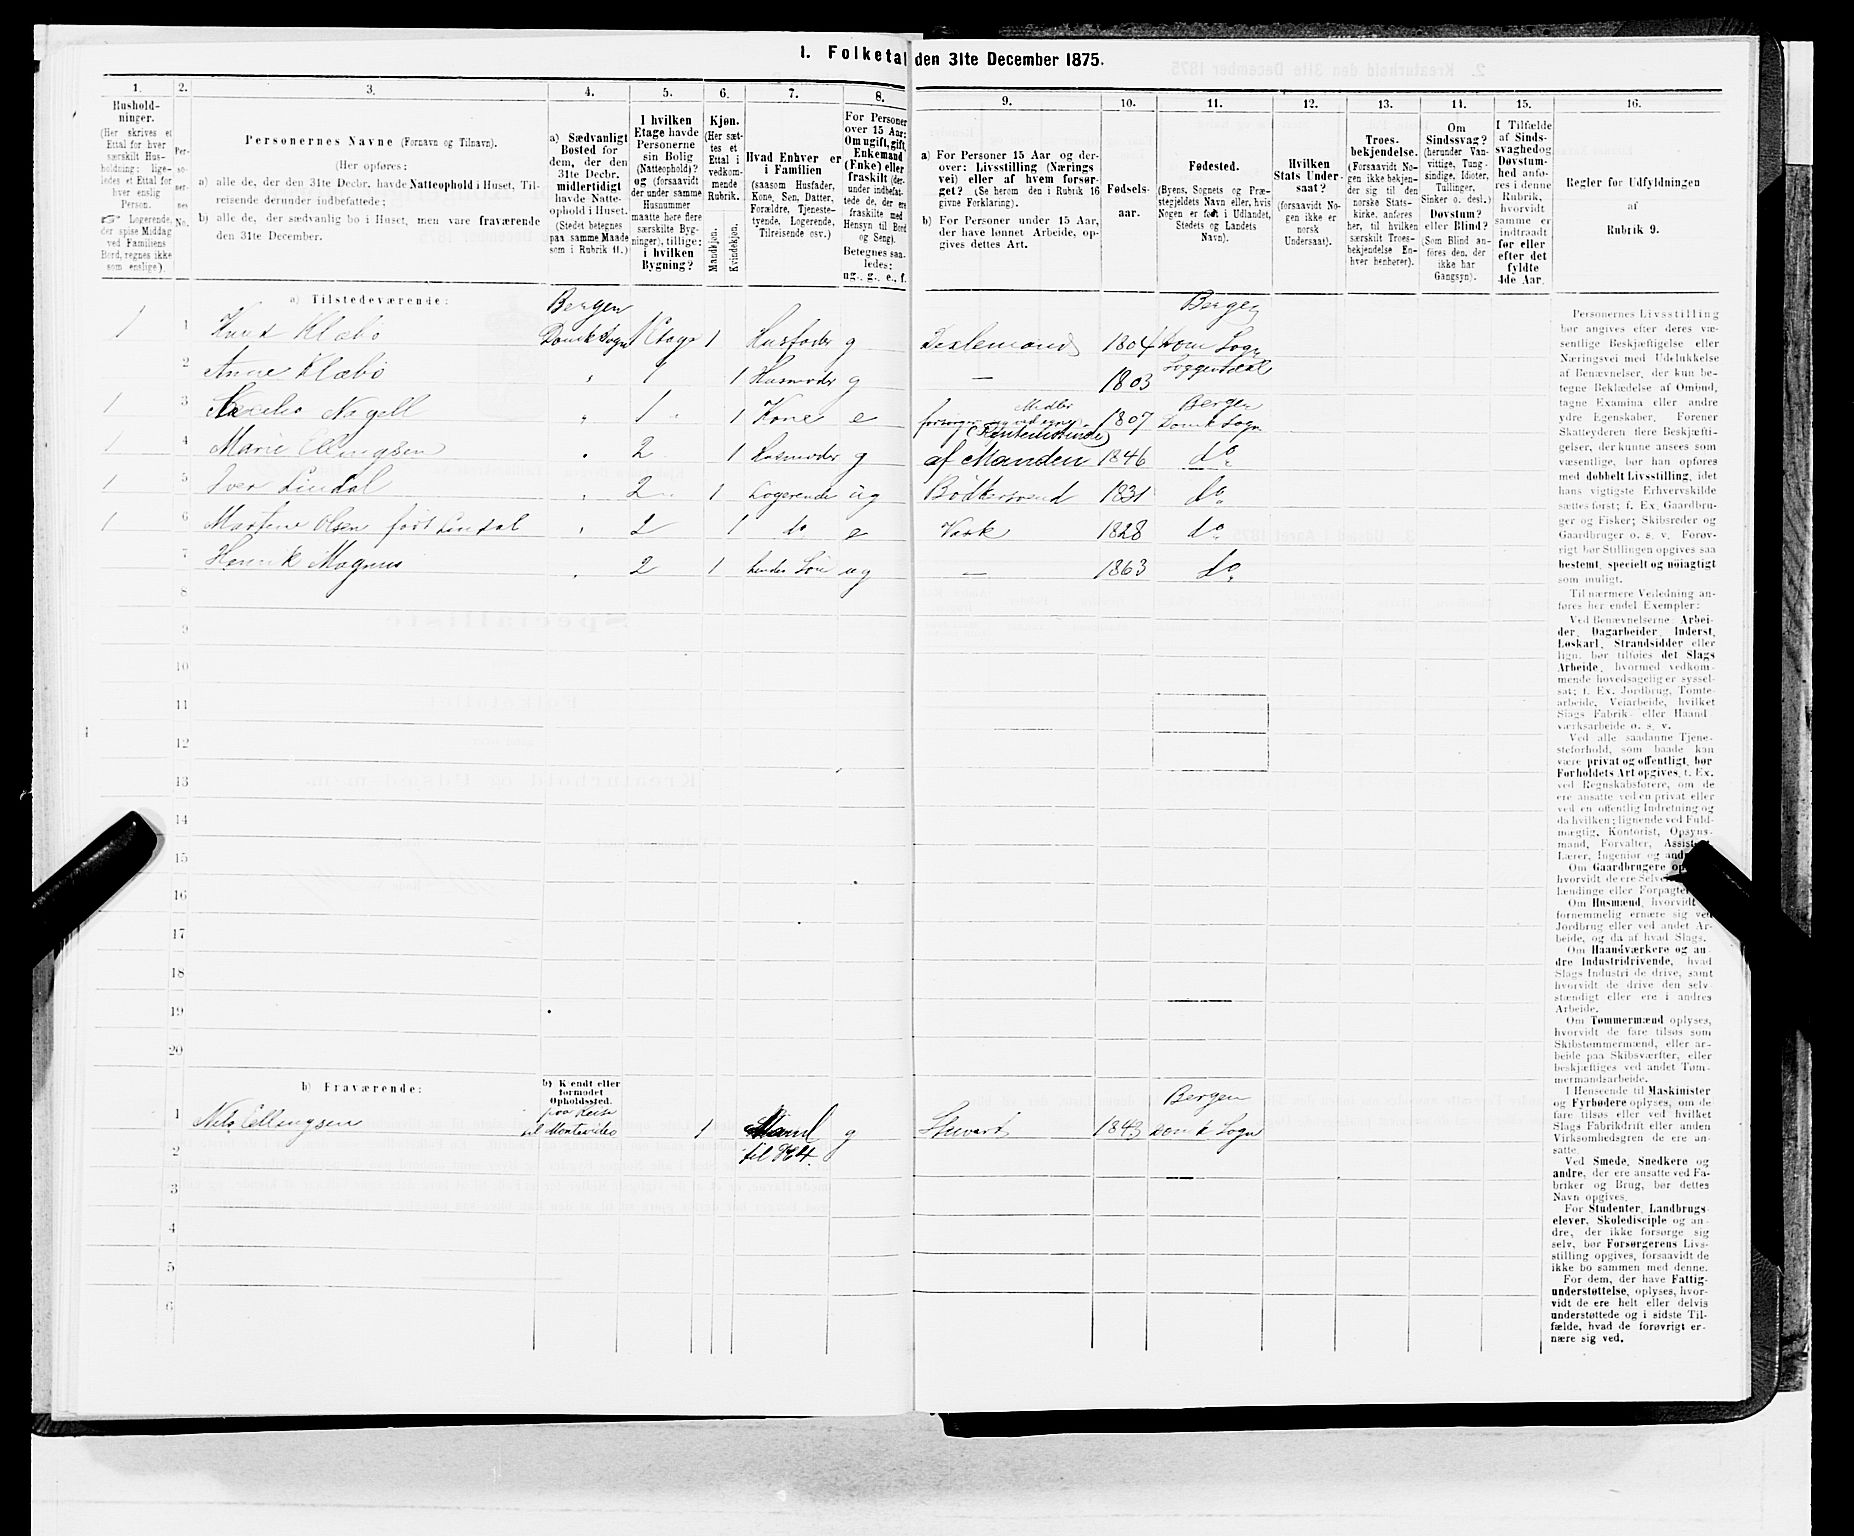 1. Folketal den 31te December 1875.
1.
2.
3.
4.
5.
6.
7.
8.
9.
10.
11.
12.
13.
14.
15.
16.
Rushold-
ninger.
(Her skrives et
Ettal for hver
særskilt Hus-
holdning; lige-
ledes et Ettal for
hver enslig
Person.
☞ Logerende,
der spise Middag
ved Familiens
Bord, regnes ikke
som enslige).
Per-
so-
ner-
nes
No.
Personernes Navne (Fornavn og Tilnavn).
(Her opføres:
a) alle de, der den 31te Decbr. havde Natteophold i Huset, Til-
reisende derunder indbefattede;
b) alle de, der sædvanlig bo i Huset, men vare fraværende
den 31te December.
a) Sædvanligt
Bosted for
dem, der den
31te Decbr.
midlertidigt
havde Natte-
ophold i Huset.
(Stedet betegnes
paa samme Maade
som i Rubrik 11.)
I hvilken
Etage havde
Personerne
sin Bolig
(Natteophold)?
og (forsaavidt
der under samme
Husnummer
maatte høre flere
særskilte Byg-
ninger), tillige:
i hvilken
Bygning?
Kjøn.
(Her sæt-
tes et
Ettal i
vedkom-
mende
Rubrik.
Mandkjøn.
Kvindekjøn.
Hvad Enhver er
i Familien
(saasom Husfader,
Kone, Søn, Datter,
Forældre, Tjeneste-
tyende, Logerende,
Tilreisende osv.)
For Personer
over 15 Aar:
Om ugift, gift,
Enkemand
(Enke) eller
fraskilt (der-
under indbefat-
tede de, der ere
fraskilte med
Hensyn til Bord
og Seng).
Betegnes saa-
ledes:
ug., g., e., f.
a) For Personer 15 Aar og der-
over: Livsstilling (Nærings
vei) eller af hvem forsør-
get? (Se herom den i Rubrik 16
givne Forklaring).
b) For Personer under 15 Aar,
der have lønnet Arbeide, op-
gives dettes Art.
Fødsels-
aar.
Fødested.
(Byens, Sognets og Præ-
stegjeldets Navn eller, hvis
Nogen er født i Udlandet,
Stedets og Landets
Navn).
Hvilken
Stats Under-
saat?
(forsaavidt No-
gen ikke er
norsk
Undersaat).
Troes-
bekjendelse.
(Forsaavidt No-
gen ikke bekjen-
der sig til den
norske Stats-
kirke, anføres
her, til hvilken
særskilt Troes-
bekjendelse En-
hver henhører).
Om
Sindssvag?
(herunder Van-
vittige, Tung-
sindige, Idioter,
Tullinger,
Sinker o. desl.)
Døvstum?
eller Blind?
(Som Blind an-
føres den, der
ikke har
Gangsyn).
I Tilfælde
af Sinds-
svaghed og
Døvstum-
hed anfø-
res i denne
Rubrik,
hvorvidt
samme er
indtraadt
før eller
efter det
fyldte
4de Aar.
Regler for Udfyldningen
af
Rubrik 9.
a) Tilstedeværende:
1 1 Knud Klæbø Bergen Domk. Sogn 1 Etage 1 Husfader g 1804 Bergen Dom Sogn
2 Anne Klæbø „ 1 1 Husmoder g — 1803
1 3 Nagell „ 1 1 Kone e Midler (Rentenistinde) 1807 Bergen Domk Sogn
1 4 Marie Ellingsen „ 2 1 Husmoder g af Manden 1846 do
1 5 Iver Lindal „ 2 1 Logerende ug Bødkersvend 1831 do
1 6 Martine Olsen født Lindal „ 2 1 do e Vask 1828 do
7 Henrik Magnus „ 2 1 hendes Søn ug — 1863 do
8
9
10
11
12
13
14
15
16
17
18
19
20
b) Fraværende:
b) Kjendt eller
formodet
Opholdssted.
1 Nils Ellingsen paa Reise til Montevideo 1 Mand til No 4. g Stuvart 1843 Bergen Domk Sogn
2
3
4
5
6
Personernes Livsstilling
bør angives efter deres væ-
sentlige Beskjæftigelse eller
Næringsvei med Udelukkelse
af Benævnelser, der kun be-
tegne Beklædelse af Ombud,
tagne Examina eller andre
ydre Egenskaber. Forener
Skatteyderen flere Beskjæfti-
gelser, der kunne ansees som
væsentlige, bør han opføres
med dobbelt Livsstilling, idet
hans vigtigste Erhvervskilde
sættes først; f. Ex. Gaardbru-
ger og Fisker; Skibsreder og
Gaardbruger o. s. v. Forøv-
rigt bør Stillingen opgives saa
bestemt, specielt og nøiagtigt
som muligt.
Til nærmere Veiledning an-
føres her endel Exempler:
Ved Benævnelserne: Arbei-
der, Dagarbeider, Inderst,
Løskarl, Strandsidder eller
lign. bør tilføies det Slags
Arbeide, hvormed vedkom-
mende hovedsagelig er syssel-
sat; f. Ex. Jordbrug, Tomte-
arbeide, Veiarbeide, hvilket
Slags Fabrik- eller Haand
værksarbeide o. s. v.
Ved alle saadanne Tjene-
steforhold, som baade kan
være privat og offentligt, bør
Forholdets Art opgives, f. Ex.
ved Regnskabsførere, om de
ere ansatte ved en privat eller
ved en offentlig Indretning og
da hvilken; lignende ved Fuld-
mægtig, Kontorist, Opsyns-
mand, Forvalter, Assistent,
Lærer, Ingeniør og andre.
Om Gaardbrugere
hvorvidt de ere
lændinge eller
Om Husmænd, hvorvidt
fornemmelig ernære sig ved
Jordbrug eller ved andet Ar-
beide, og da af hvad Slags.
Om Haandværkere og an-
dre Industridrivende, hvad
Slags Industri de drive, samt
hvorvidt de drive den selv-
stændigt eller ere i andres
Arbeide.
Om Tømmermænd oplyses,
hvorvidt de fare tilsøs som
Skibstømmermænd, eller ar-
beide paa Skibsværfter, eller
beskjæftiges ved andet Tøm-
mermandsarbeide.
I Henseende til Maskinister
og Fyrbødere oplyses, om de
fare tilsøs eller ved hvilket
Slags Fabrikdrift eller anden
Virksomhedsgren de ere an-
satte.
Ved Smede, Snedkere og
andre, der ere ansatte ved Fa-
briker og Brug, bør dettes
Navn opgives.
For Studenter, Landbrugs-
elever, Skoledisciple og an-
dre, der ikke forsørge sig
selv, bør Forsørgerens Livs-
stilling opgives, forsaavidt de
ikke bo sammen med denne.
For dem, der have Fattig-
understøttelse, oplyses, hvor-
vidt de ere helt eller delvis
understøttede og i sidste Til-
fælde, hvad de forøvrigt er-
nære sig ved.